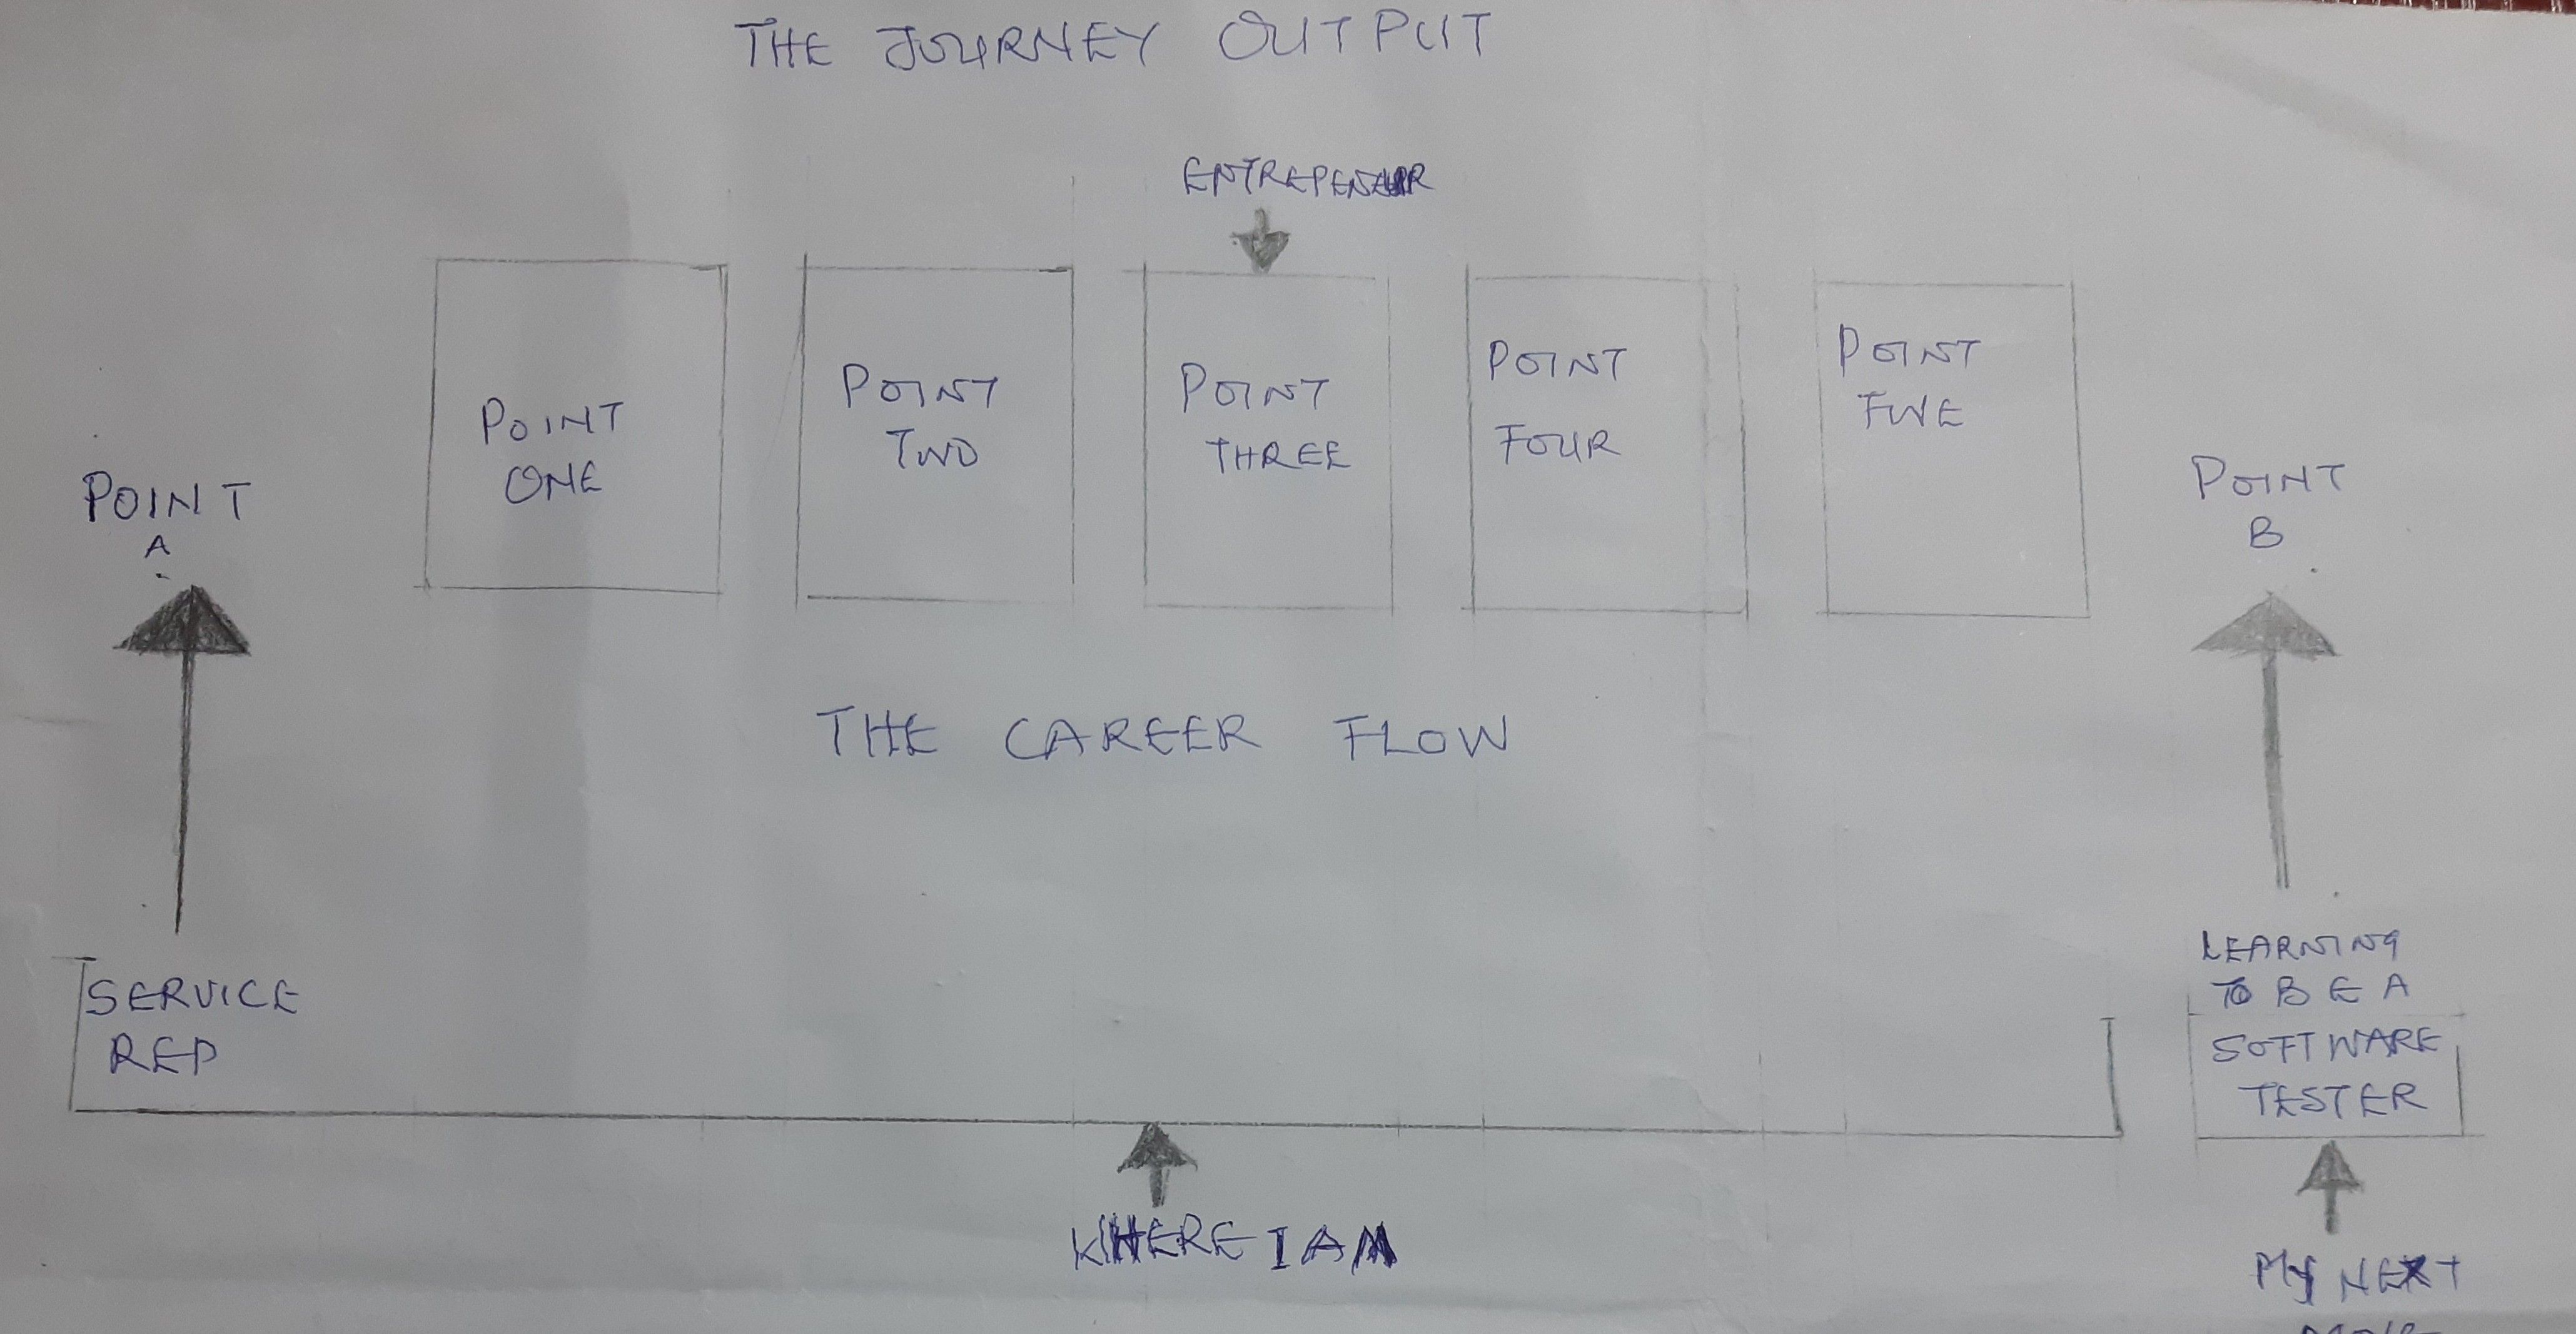 THE JOURNEY OUTPUT
POINT
ONE
POINT
TWO
POINT
THREE
POINT
FOUR
POINT
FIVE
POINT
A
POINT
B
THE CAREER FLOW
SERVICE
REP
LEARNING
TO BE A
SOFTWARE
TESTER
WHERE I AM
MY NEXT